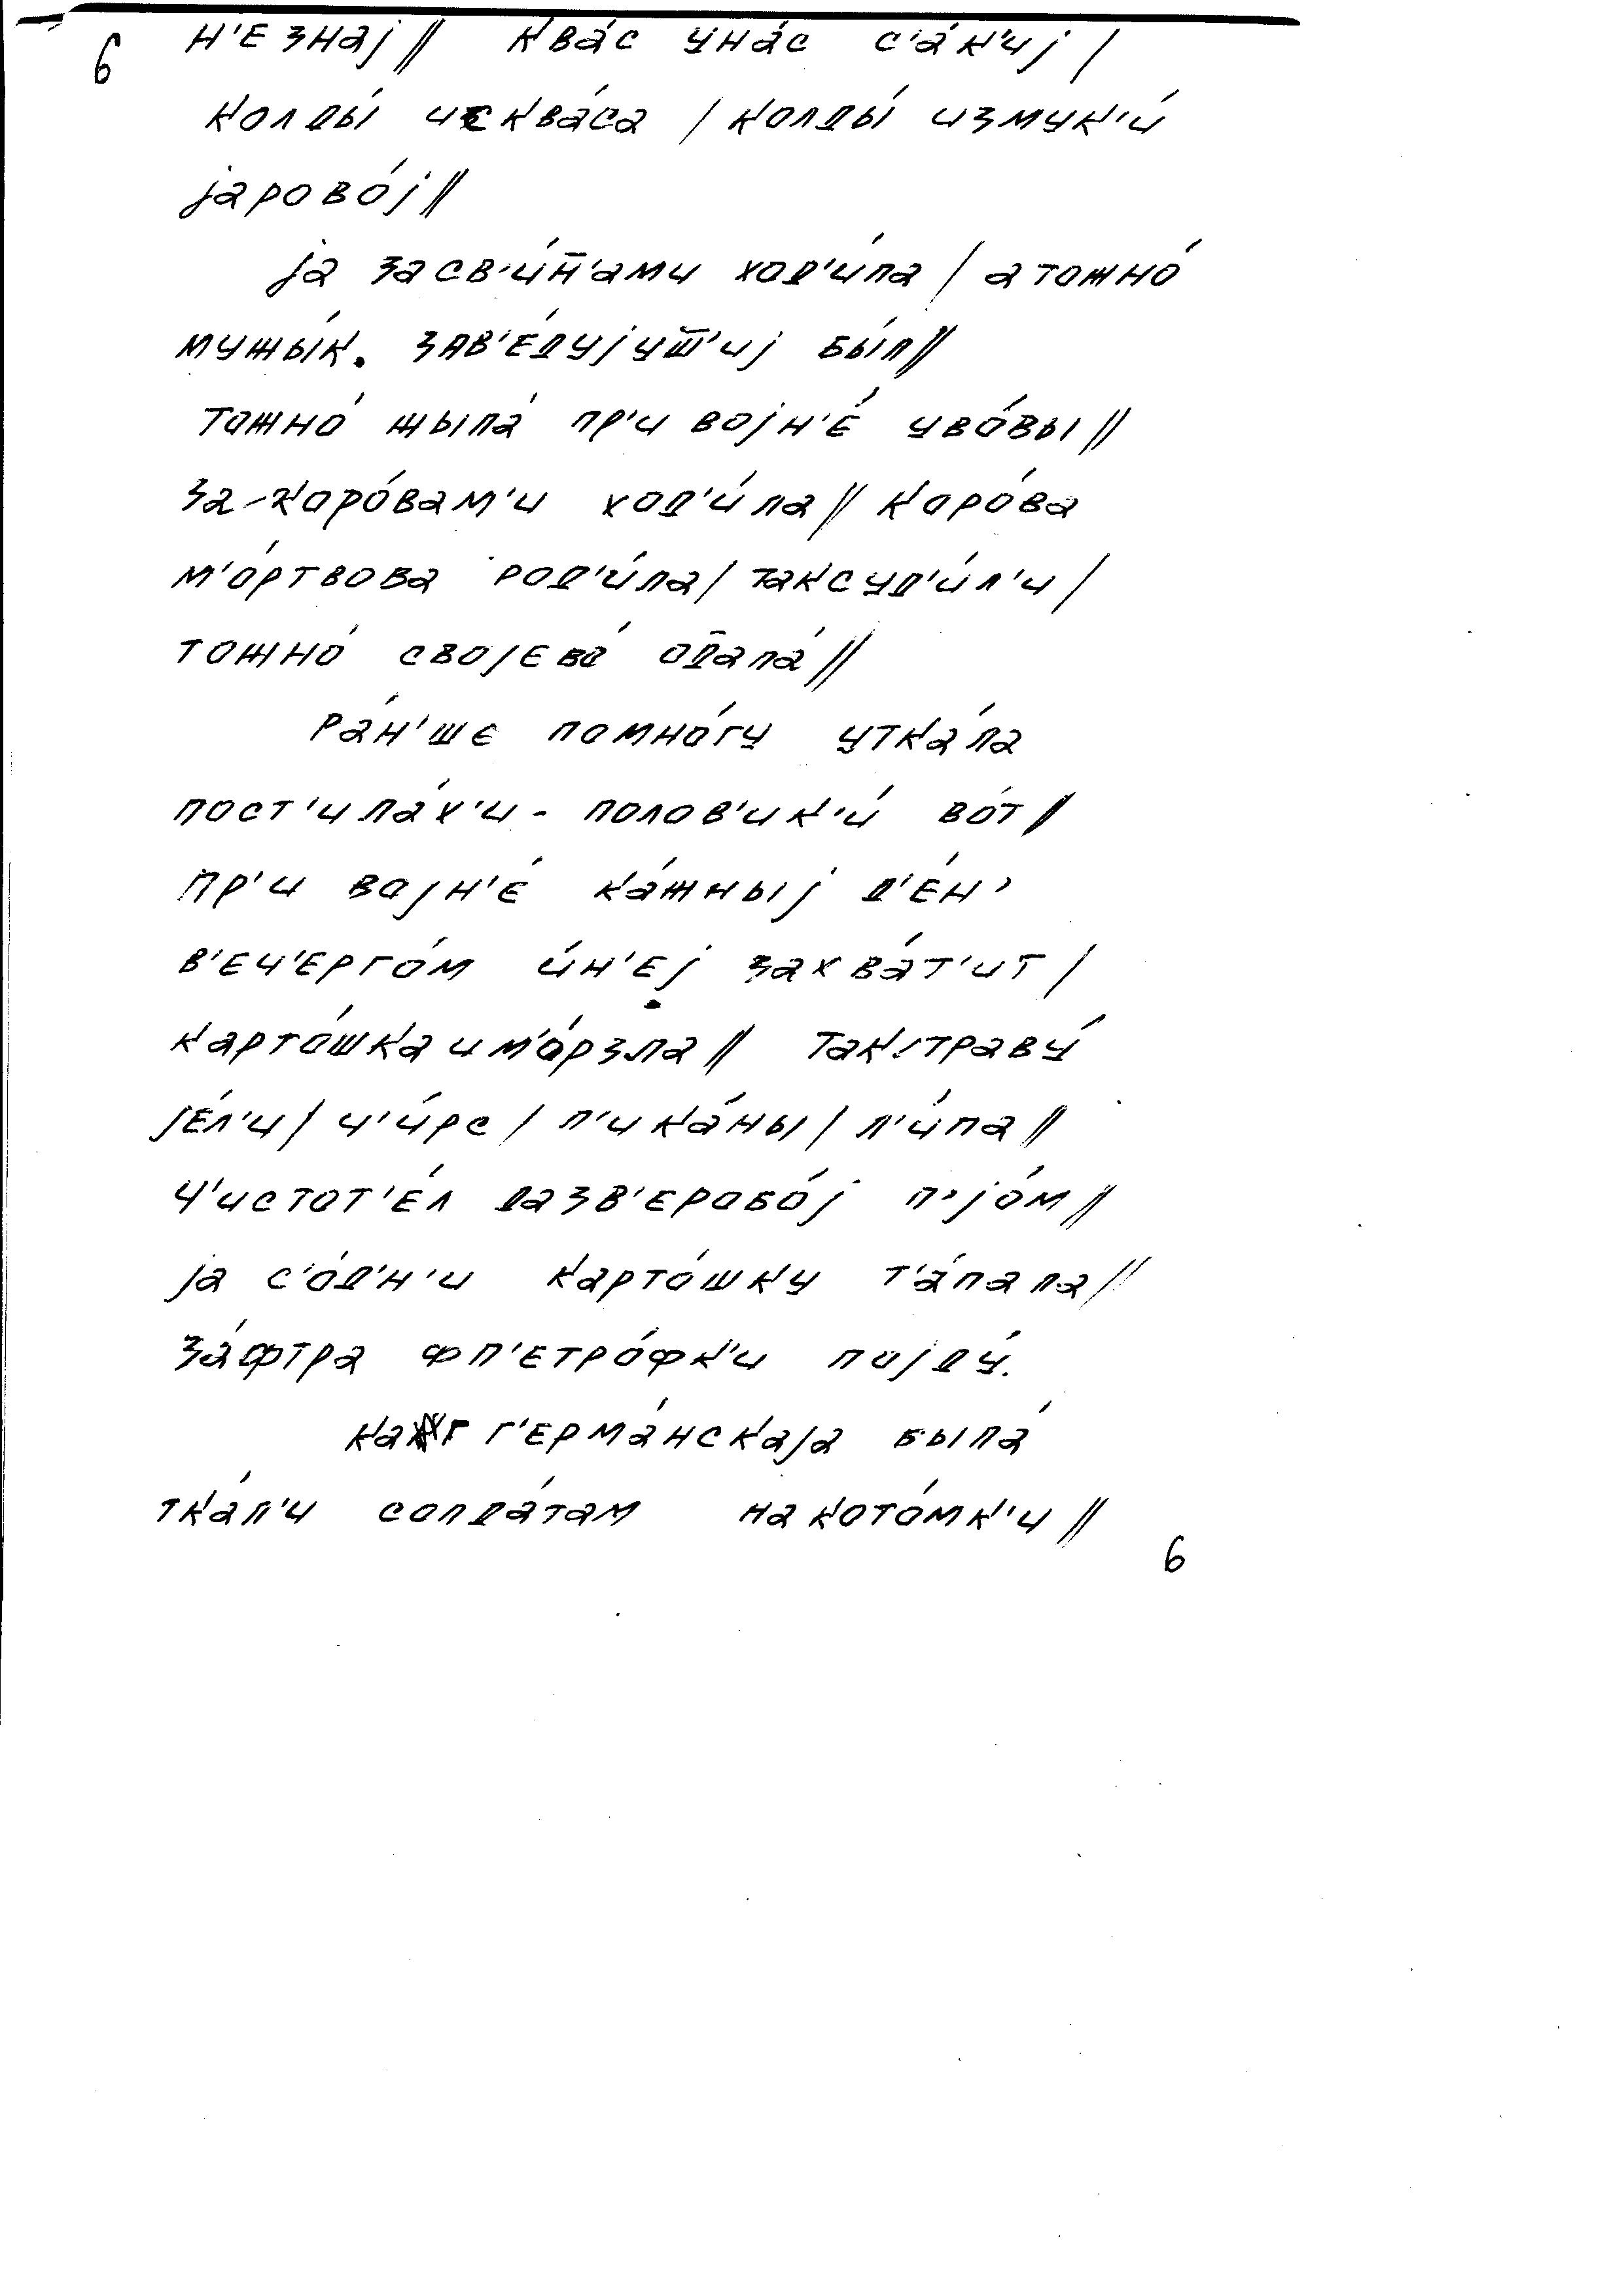 6 н'езнај // квáс унáс с'áк'иј /
колды́ исквáса / колды́ измук'и́
јаровóј //
ја засв'и́н̄'ами ход'и́ла / а тожнó
мужы́к. зав'éдујуш̄'иј бы́л //
тожнó жылá пр'и војн'é увóвы //
за-карóвам'и ход'и́ла // карóва
м'óртвова род'и́ла / таксуд'и́л'и /
тожнó својевó од̄алá //
рáн'ше помнóгу уткáла
пост'илáх'и - полов'ик'и́ вóт //
пр'и вајн'é кáжныј д'éн'
в'еч'ергóм и́н'еј захвáт'ит /
картóшка им'óрзла // так/травý
јéл'и / ч'и́рс / п'икáны / л'и́па //
ч'истот'éл дазв'еробóј п'јóм //
ја с'óд'н'и картóшку т'áпала //
зáфтра фп'етрóфк'и појдý.
каг г'ермáнскаја былá
ткáл'и солдáтам накотóмк'и //
6